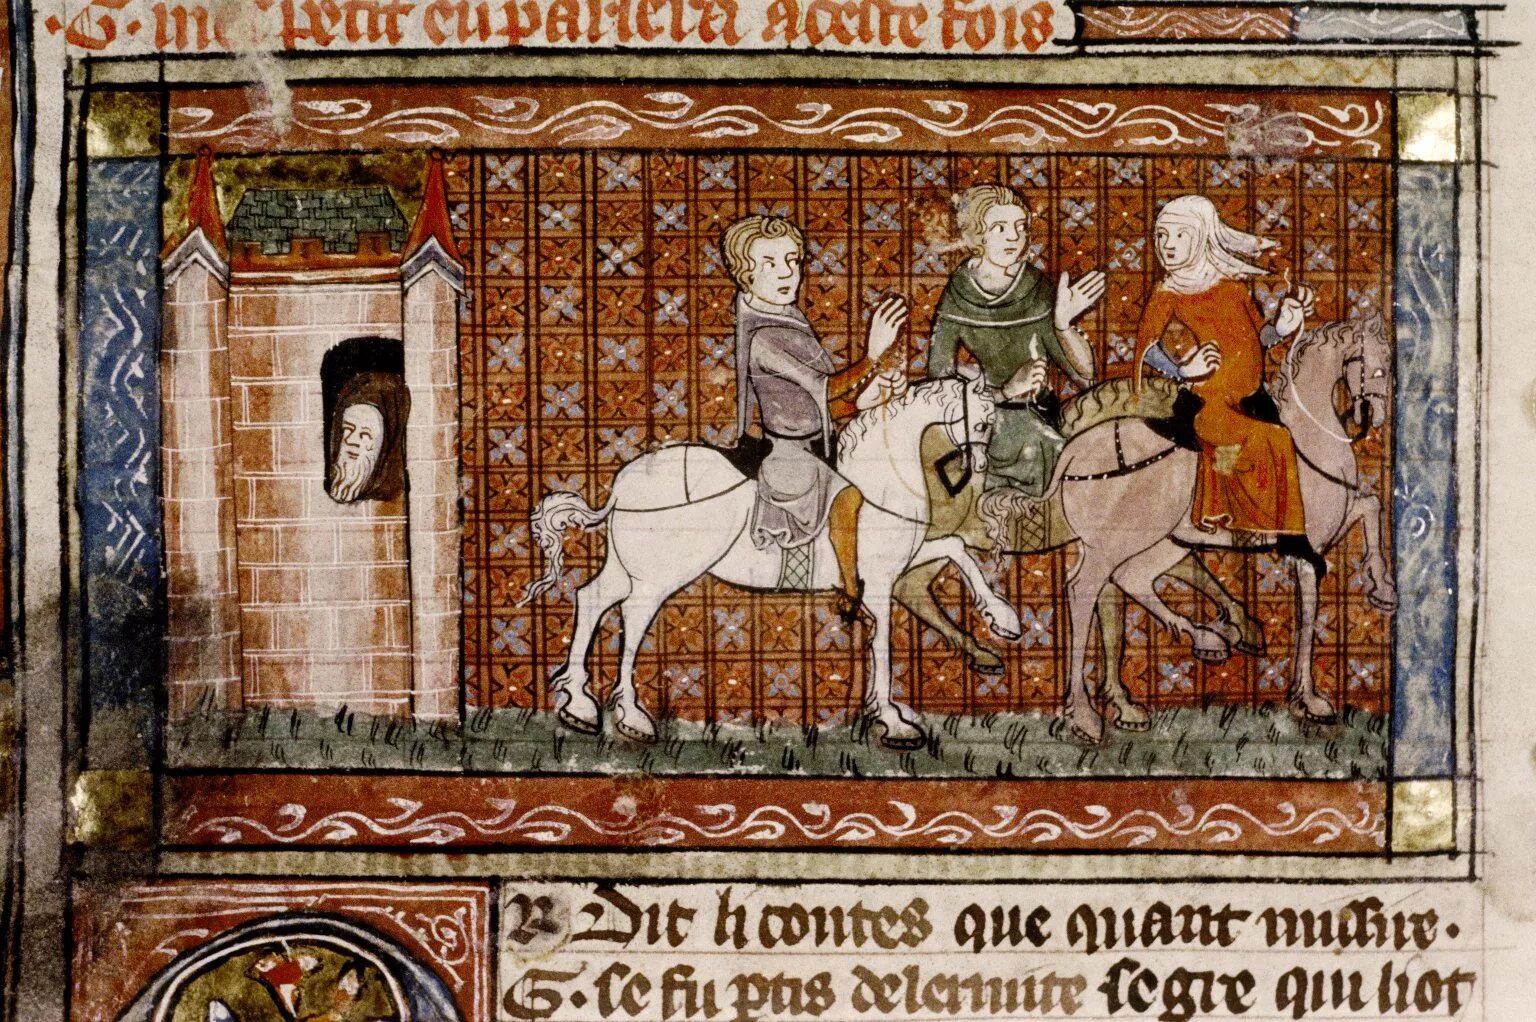 ·G· in petit en parlera a ceste fois
Or Dit li contes que quant missire·
G· se fu ptis del ermite segre qui liot